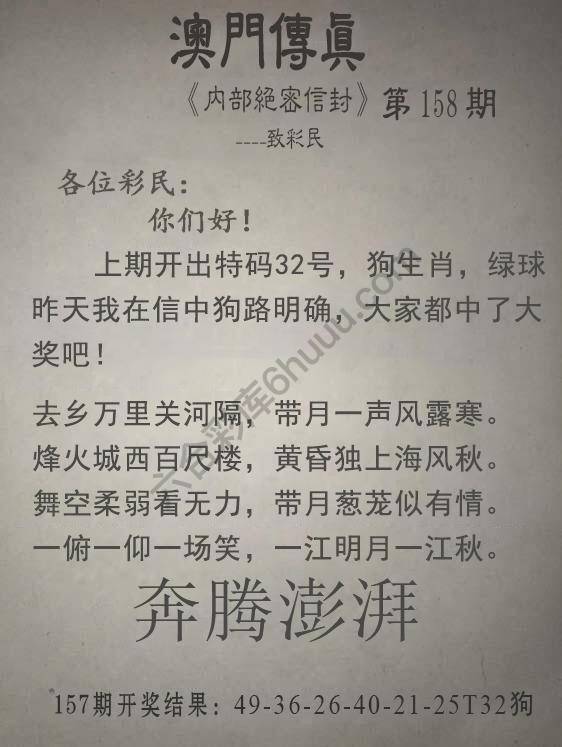 澳門傳真
《内部絕密信封》第158期
----致彩民
各位彩民：
你们好！
上期开出特码32号，狗生肖，绿球
昨天我在信中狗路明确，大家都中了大
奖吧！
去乡万里关河隔，带月一声风露寒。
烽火城西百尺楼，黄昏独上海风秋。
舞空柔弱看无力，带月葱茏似有情。
一俯一仰一场笑，一江明月一江秋。
奔腾澎湃
157期开奖结果：49-36-26-40-21-25T32狗
六合彩库6huuu.com